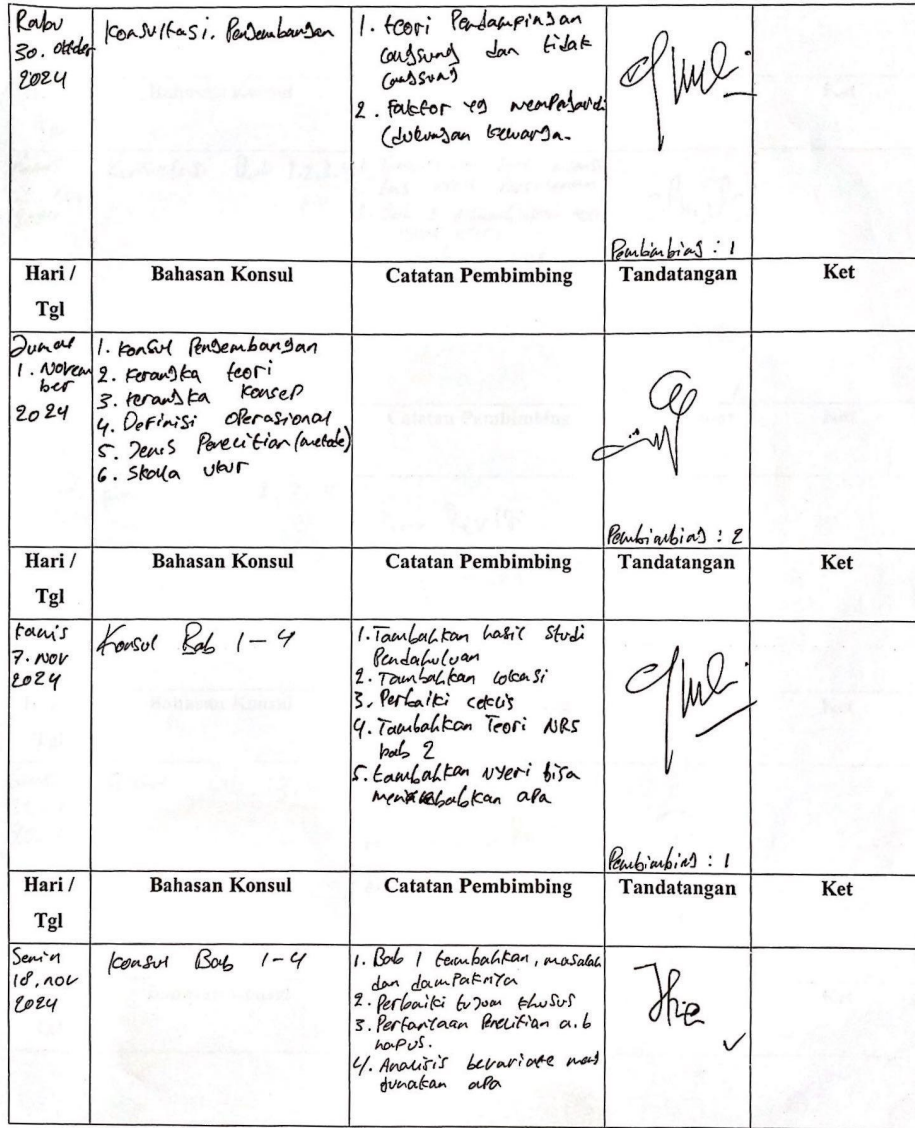 Rabu
30. Oktober
2024
Konsultasi. Pengembangan
1. teori Pendampingan
langsung dan tidak
langsung
2. Faktor yg mempengaruhi
(dukungan keluarga.
Pembimbing : 1
Hari / Bahasan Konsul Catatan Pembimbing Tandatangan Ket
Tgl
Jumat
1. Novem
ber
2024
1. Konsul Pengembangan
2. Kerangka teori
3. kerangka Konsep
4. Definisi Operasional
5. Jenis Penelitian (metode)
6. Skala ukur
Pembimbing : 2
Hari / Bahasan Konsul Catatan Pembimbing Tandatangan Ket
Tgl
Kamis
7. Nov
2024
Konsul Bab 1-4
1. Tambahkan hasil Studi
Pendahuluan
2. Tambahkan lokasi
3. Perbaiki ceklis
4. Tambahkan Teori NRS
bab 2
5. tambahkan Nyeri bisa
menyebabkan apa
Pembimbing : 1
Hari / Bahasan Konsul Catatan Pembimbing Tandatangan Ket
Tgl
Senin
18, nov
2024
Konsul Bab 1-4
1. Bab 1 tambahkan, masalah
dan dampaknya
2. Perbaiki tujuan khusus
3. Pertanyaan Penelitian a.b
hapus.
4. Analisis bevariate
gunakan apa